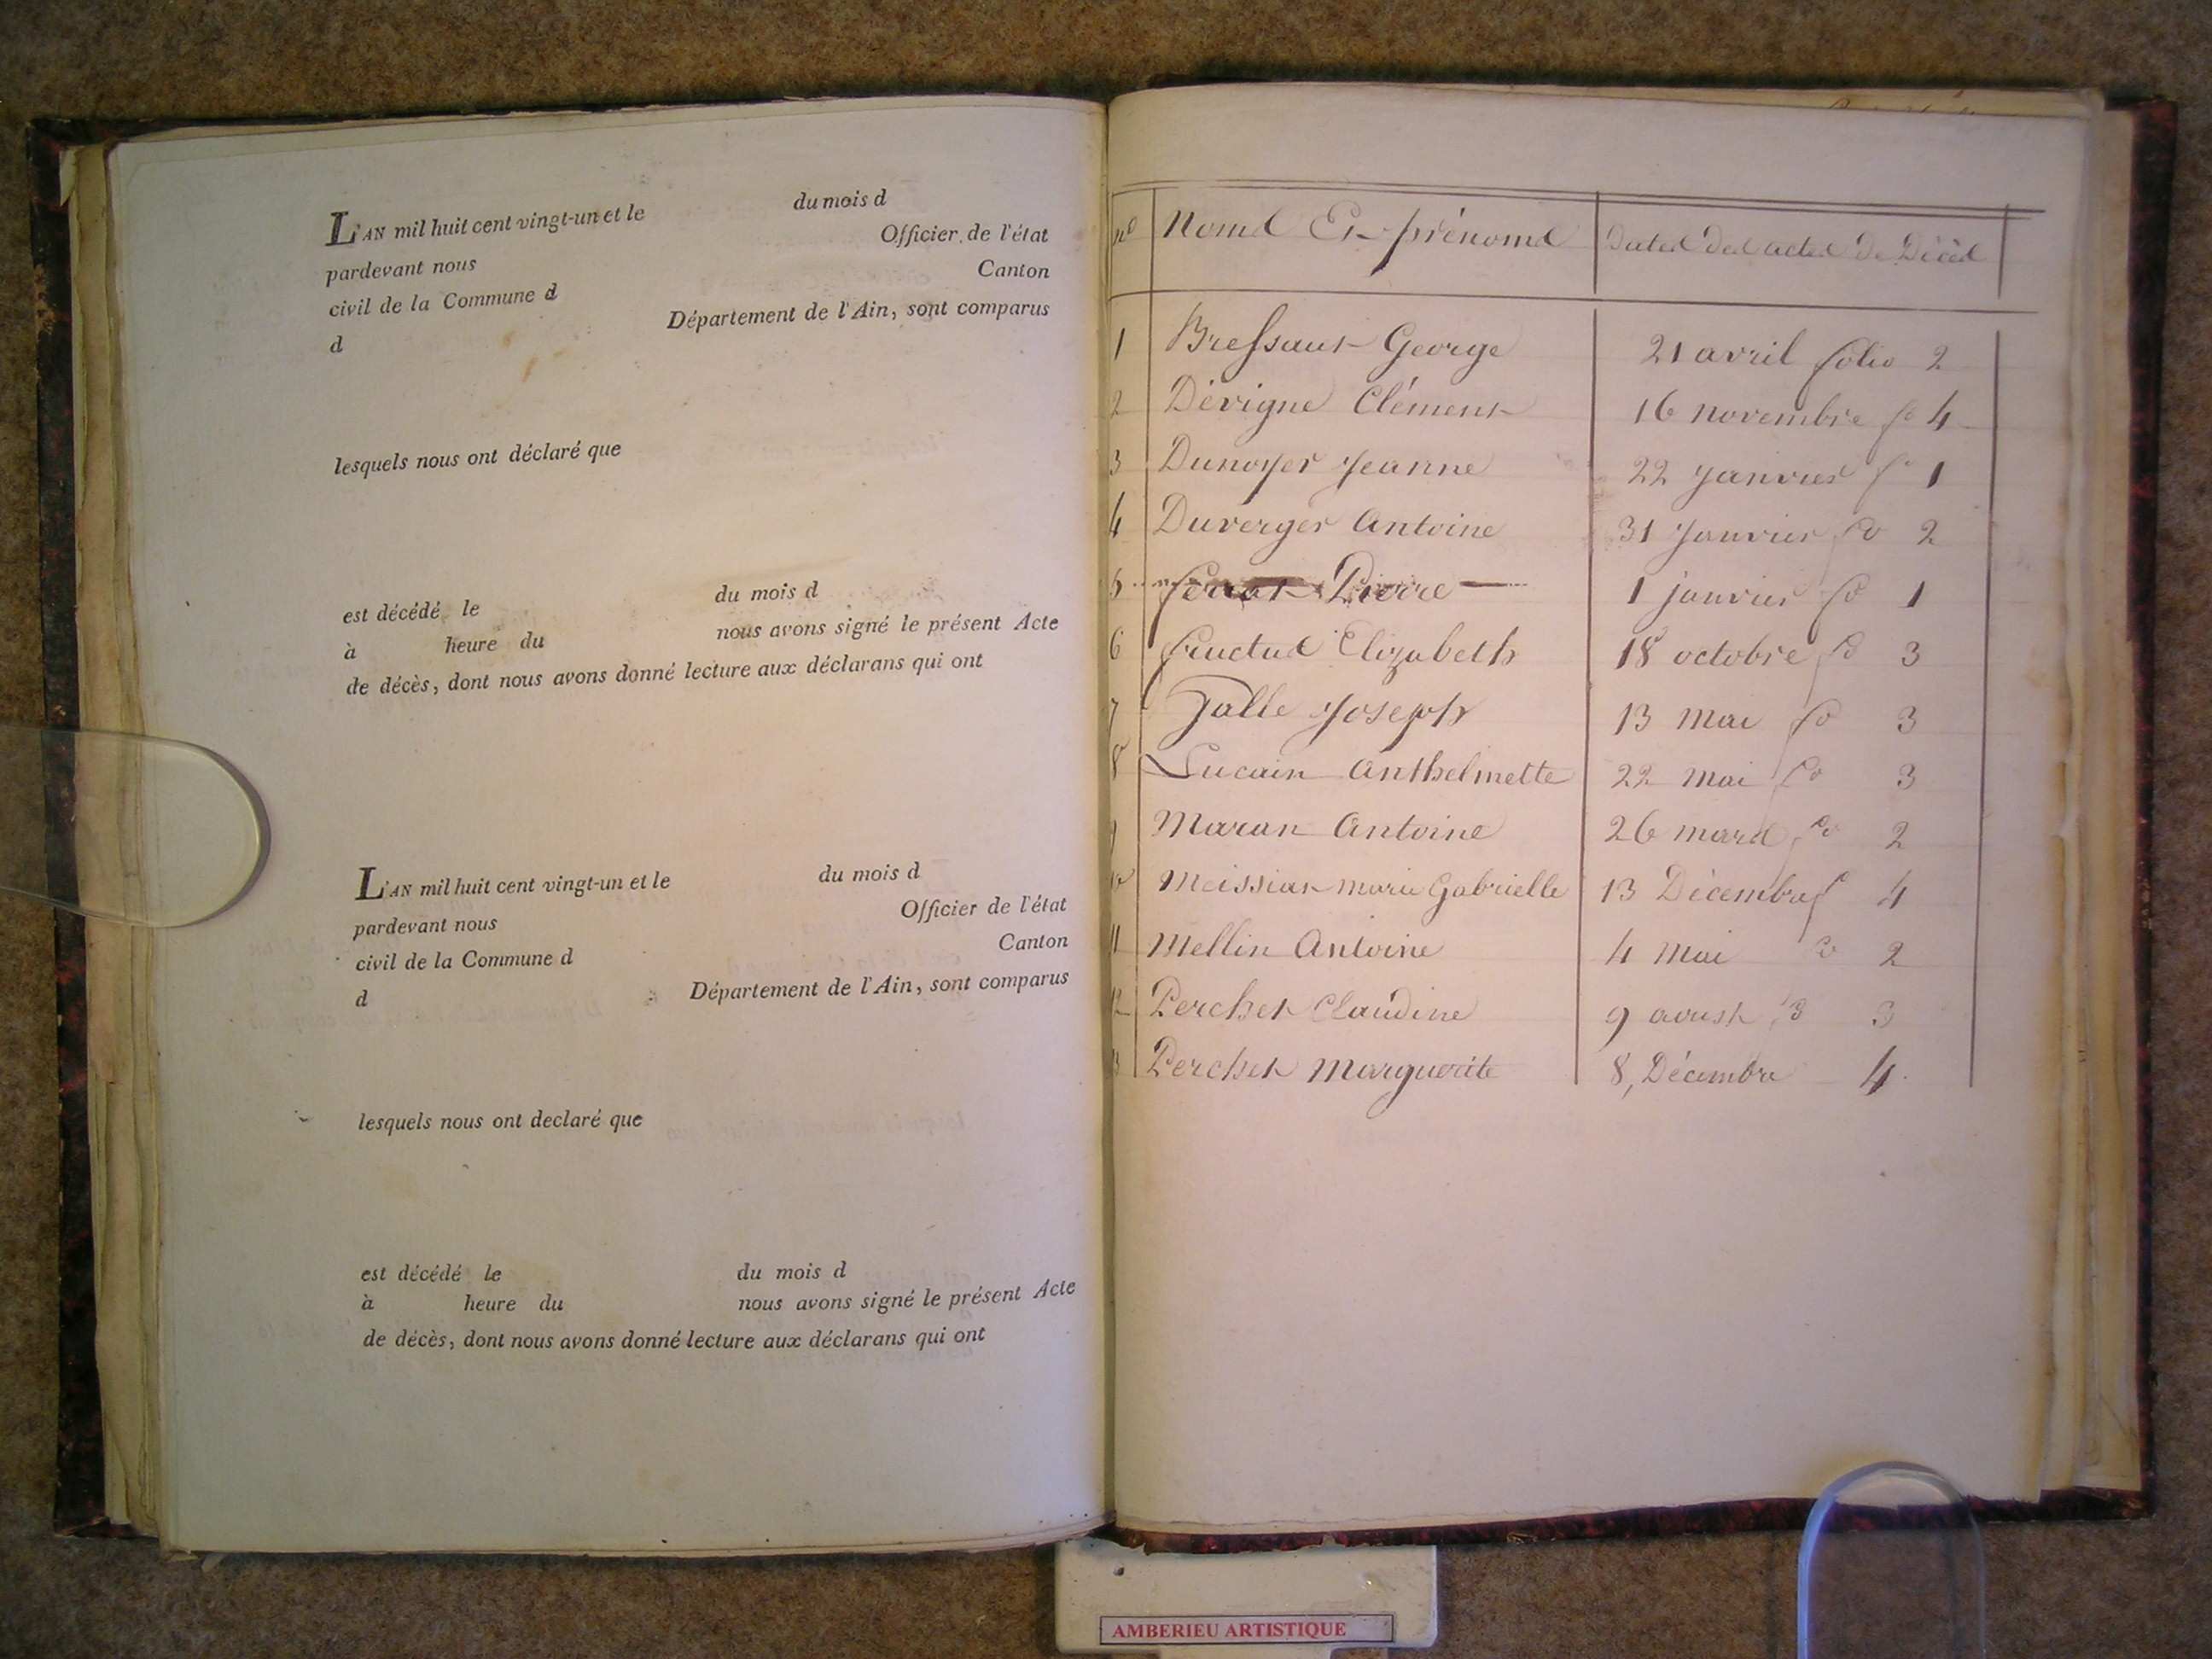 L'AN mil huit cent vingt-un et le du mois d
pardevant nous Officier de l'état
civil de la Commune d Canton
d Département de l'Ain, sont comparus
lesquels nous ont déclaré que
est décédé le du mois d
à heure du nous avons signé le présent Acte
de décès, dont nous avons donné lecture aux déclarans qui ont
L'AN mil huit cent vingt-un et le du mois d
pardevant nous Officier de l'état
civil de la Commune d Canton
d Département de l'Ain, sont comparus
lesquels nous ont declaré que
est décédé le du mois d
à heure du nous avons signé le présent Acte
de décès, dont nous avons donné lecture aux déclarans qui ont
nos Noms Et prénoms Dates des actes De Décès
1 Bressaut George 21 avril folio 2
2 Dévigne Clément 16 novembre fo 4
3 Dunoyer Jeanne 22 Janvier fo 1
4 Duverger Antoine 31 Janvier fo 2
5 Pierre 1 janvier fo 1
6 fructus Elizabeth 18 octobre fo 3
7 Jalle Joseph 13 Mai fo 3
8 Lucain Anthelmette 22 Mai fo 3
9 Maran Antoine 26 mars fo 2
10 Meissiat marie Gabrielle 13 Décembre f 4
11 Mellin Antoine 4 Mai fo 2
12 Perchet Claudine 9 aoust fo 3
13 Perchet Marguerite 8, Décembre 4
AMBERIEU ARTISTIQUE